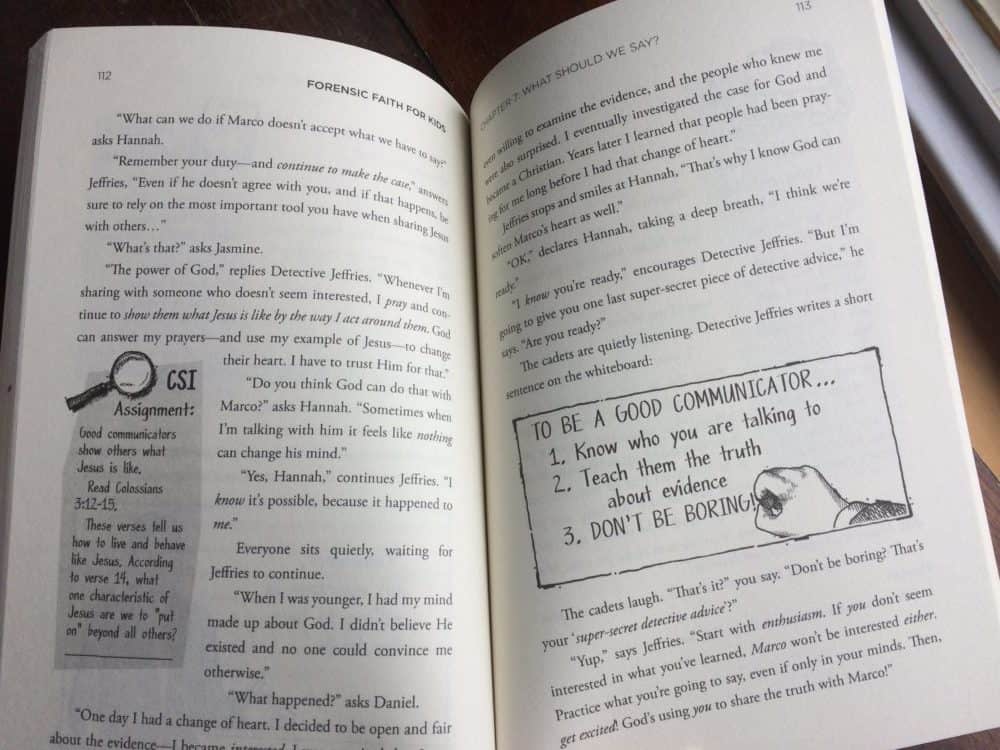 112
FORENSIC FAITH FOR KIDS
“What can we do if Marco doesn’t accept what we have to say?”
asks Hannah.
“Remember your duty—and continue to make the case,” answers
Jeffries, “Even if he doesn’t agree with you, and if that happens, be
sure to rely on the most important tool you have when sharing Jesus
with others…”
“What’s that?” asks Jasmine.
“The power of God,” replies Detective Jeffries. “Whenever I’m
sharing with someone who doesn’t seem interested, I pray and con-
tinue to show them what Jesus is like by the way I act around them. God
can answer my prayers—and use my example of Jesus—to change
their heart. I have to trust Him for that.”
“Do you think God can do that with
Marco?” asks Hannah. “Sometimes when
I’m talking with him it feels like nothing
can change his mind.”
“Yes, Hannah,” continues Jeffries. “I
know it’s possible, because it happened to
me.”
Everyone sits quietly, waiting for
Jeffries to continue.
“When I was younger, I had my mind
made up about God. I didn’t believe He
existed and no one could convince me
otherwise.”
“What happened?” asks Daniel.
“One day I had a change of heart. I decided to be open and fair
about the evidence—I became interested. I
CSI
Assignment:
Good communicators
show others what
Jesus is like.
Read Colossians
3:12-15.
These verses tell us
how to live and behave
like Jesus. According
to verse 14, what
one characteristic of
Jesus are we to "put
on" beyond all others?
CHAPTER 7: WHAT SHOULD WE SAY?
113
even willing to examine the evidence, and the people who knew me
were also surprised. I eventually investigated the case for God and
became a Christian. Years later I learned that people had been pray-
ing for me long before I had that change of heart.”
Jeffries stops and smiles at Hannah, “That’s why I know God can
soften Marco’s heart as well.”
“OK,” declares Hannah, taking a deep breath, “I think we’re
ready.”
“I know you’re ready,” encourages Detective Jeffries. “But I’m
going to give you one last super-secret piece of detective advice,” he
says. “Are you ready?”
The cadets are quietly listening. Detective Jeffries writes a short
sentence on the whiteboard:
TO BE A GOOD COMMUNICATOR...
1. Know who you are talking to
2. Teach them the truth
about evidence
3. DON'T BE BORING!
The cadets laugh. “That’s it?” you say. “Don’t be boring? That’s
your ‘super-secret detective advice’?”
“Yup,” says Jeffries. “Start with enthusiasm. If you don’t seem
interested in what you’ve learned, Marco won’t be interested either.
Practice what you’re going to say, even if only in your minds. Then,
get excited! God’s using you to share the truth with Marco!”